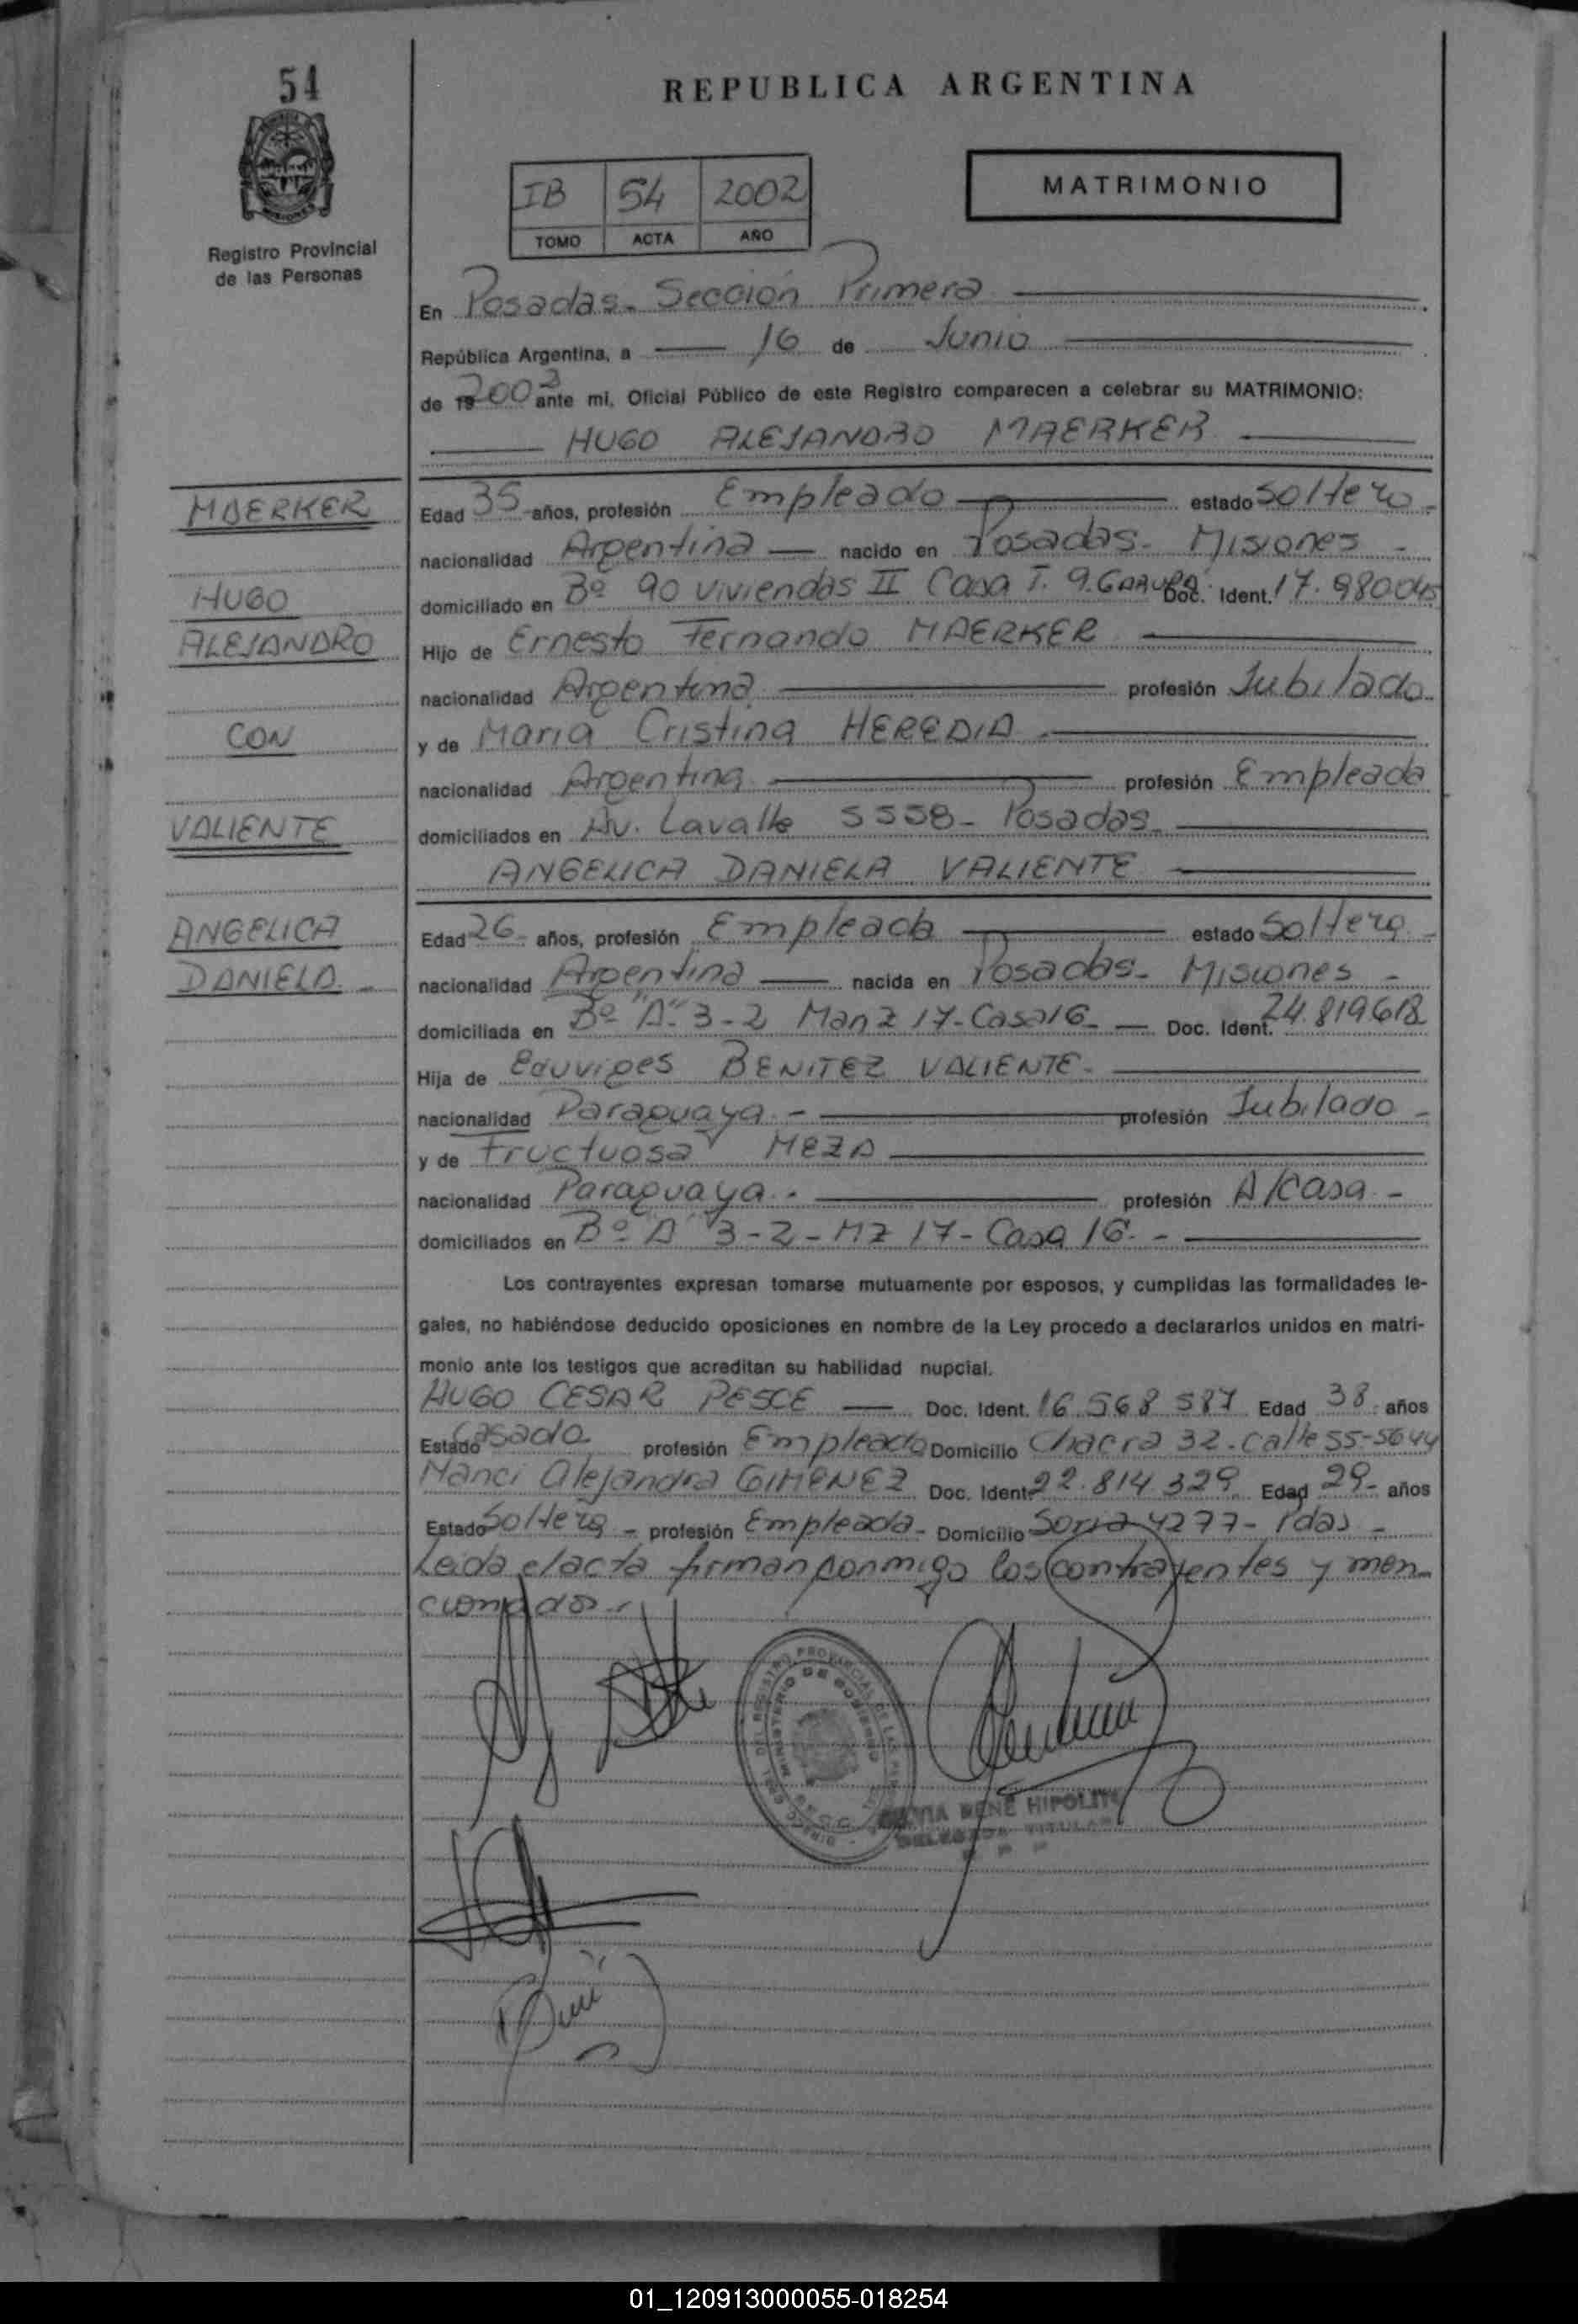 54
REPUBLICA ARGENTINA
IB 54 2002
TOMO ACTA AÑO
MATRIMONIO
Registro Provincial
de las Personas
En Posadas- Sección Primera
República Argentina, a 16 de Junio
de 19 2002 ante mi, Oficial Público de este Registro comparecen a celebrar su MATRIMONIO:
HUGO ALEJANDRO MAERKER
MAERKER
HUGO
ALEJANDRO
CON
VALIENTE
ANGELICA
DANIELA.-
Edad 35 años, profesión Empleado estado Soltero-
nacionalidad Argentina nacido en Posadas- Misiones-
domiciliado en Bº 90 viviendas II Casa T. 9. Doc. Ident. 17.980045
Hijo de Ernesto Fernando MAERKER
nacionalidad Argentina profesión Jubilado
y de Maria Cristina HEREDIA
nacionalidad Argentina profesión Empleada
domiciliados en Av. Lavalle 5558- Posadas-
ANGELICA DANIELA VALIENTE
Edad 26 años, profesión Empleada estado Soltera-
nacionalidad Argentina nacida en Posadas- Misiones-
domiciliada en Bº "A" 3-2 Manz 17-Casa 16- Doc. Ident. 24.819618
Hija de Eduviges BENITEZ VALIENTE-
nacionalidad Paraguaya.- profesión Jubilado-
y de Fructuosa MEZA
nacionalidad Paraguaya.- profesión A/casa-
domiciliados en Bº "A" 3-2-MZ 17- Casa 16.-
Los contrayentes expresan tomarse mutuamente por esposos, y cumplidas las formalidades le-
gales, no habiéndose deducido oposiciones en nombre de la Ley procedo a declararlos unidos en matri-
monio ante los testigos que acreditan su habilidad nupcial.
HUGO CESAR PESCE Doc. Ident. 16.568 587 Edad 38 años
Estado Casado profesión Empleado Domicilio Chacra 32-Calle 55-5644
Nanci Alejandra GIMENEZ Doc. Ident. 22.814 329 Edad 29- años
Estado Soltera- profesión Empleada- Domicilio Soria 4277- Pdas-
Leida el acta firman conmigo los contrayentes y men-
cionados.-
HIPOLITO
DELEGADA TITULAR
01_120913000055-018254